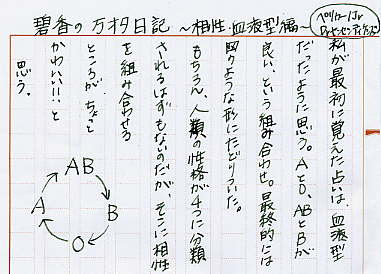 碧香の万オタ日記 〜相性・血液型編〜
私が最初に覚えた占いは、血液型
だったように思う。AとO、ABとBが
良い、という組み合わせ。最終的には
図のような形にたどりついた。
もちろん、人類の性格が4つに分類
されるはずもないのだが、そこに相性
を組み合わせる
ところが、ちょっと
かわいい!!と
思う。
AB
B
O
A